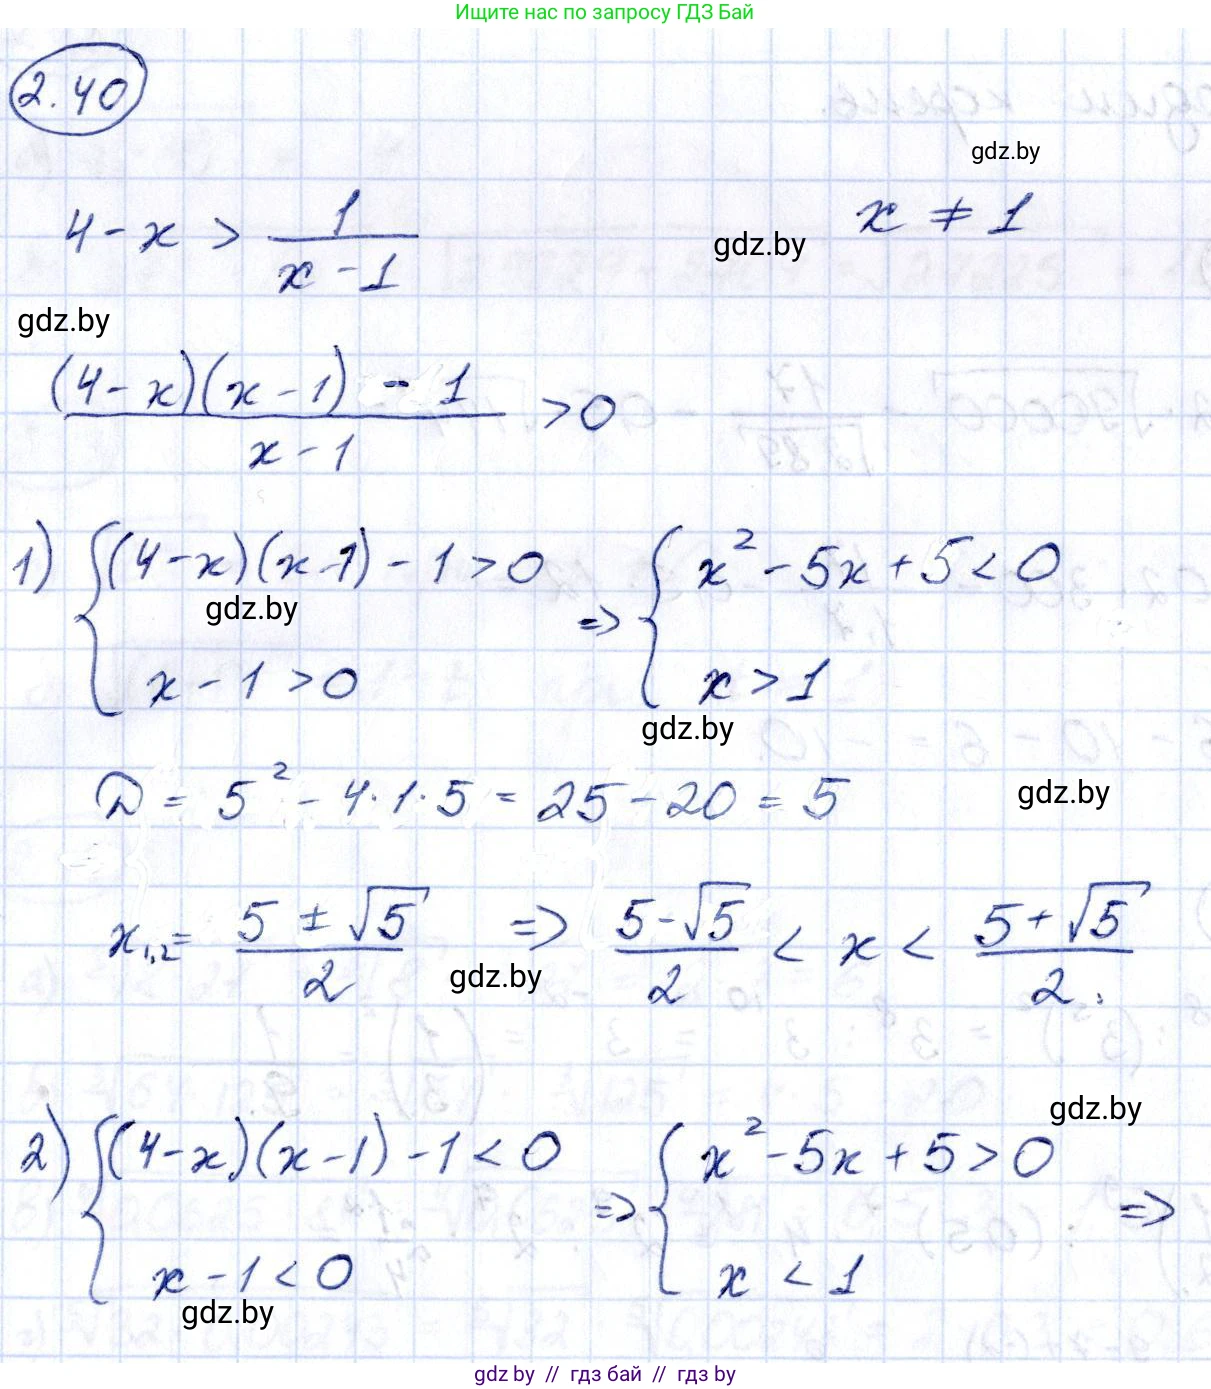 Ищите нас по запросу ГДЗ Бай
2.40
gdz.by
4 - x > 1/(x - 1)    x ≠ 1
gdz.by
gdz.by
((4 - x)(x - 1) - 1)/(x - 1) > 0
1) { (4 - x)(x - 1) - 1 > 0 => { x² - 5x + 5 < 0
gdz.by
x - 1 > 0    x > 1
gdz.by
D = 5² - 4·1·5 = 25 - 20 = 5
gdz.by
x₁,₂ = (5 ± √5)/2 => (5 - √5)/2 < x < (5 + √5)/2;
gdz.by
gdz.by
2) { (4 - x)(x - 1) - 1 < 0 => { x² - 5x + 5 > 0 =>
x - 1 < 0    x < 1
gdz.by
gdz.by // гдз бай // gdz.by